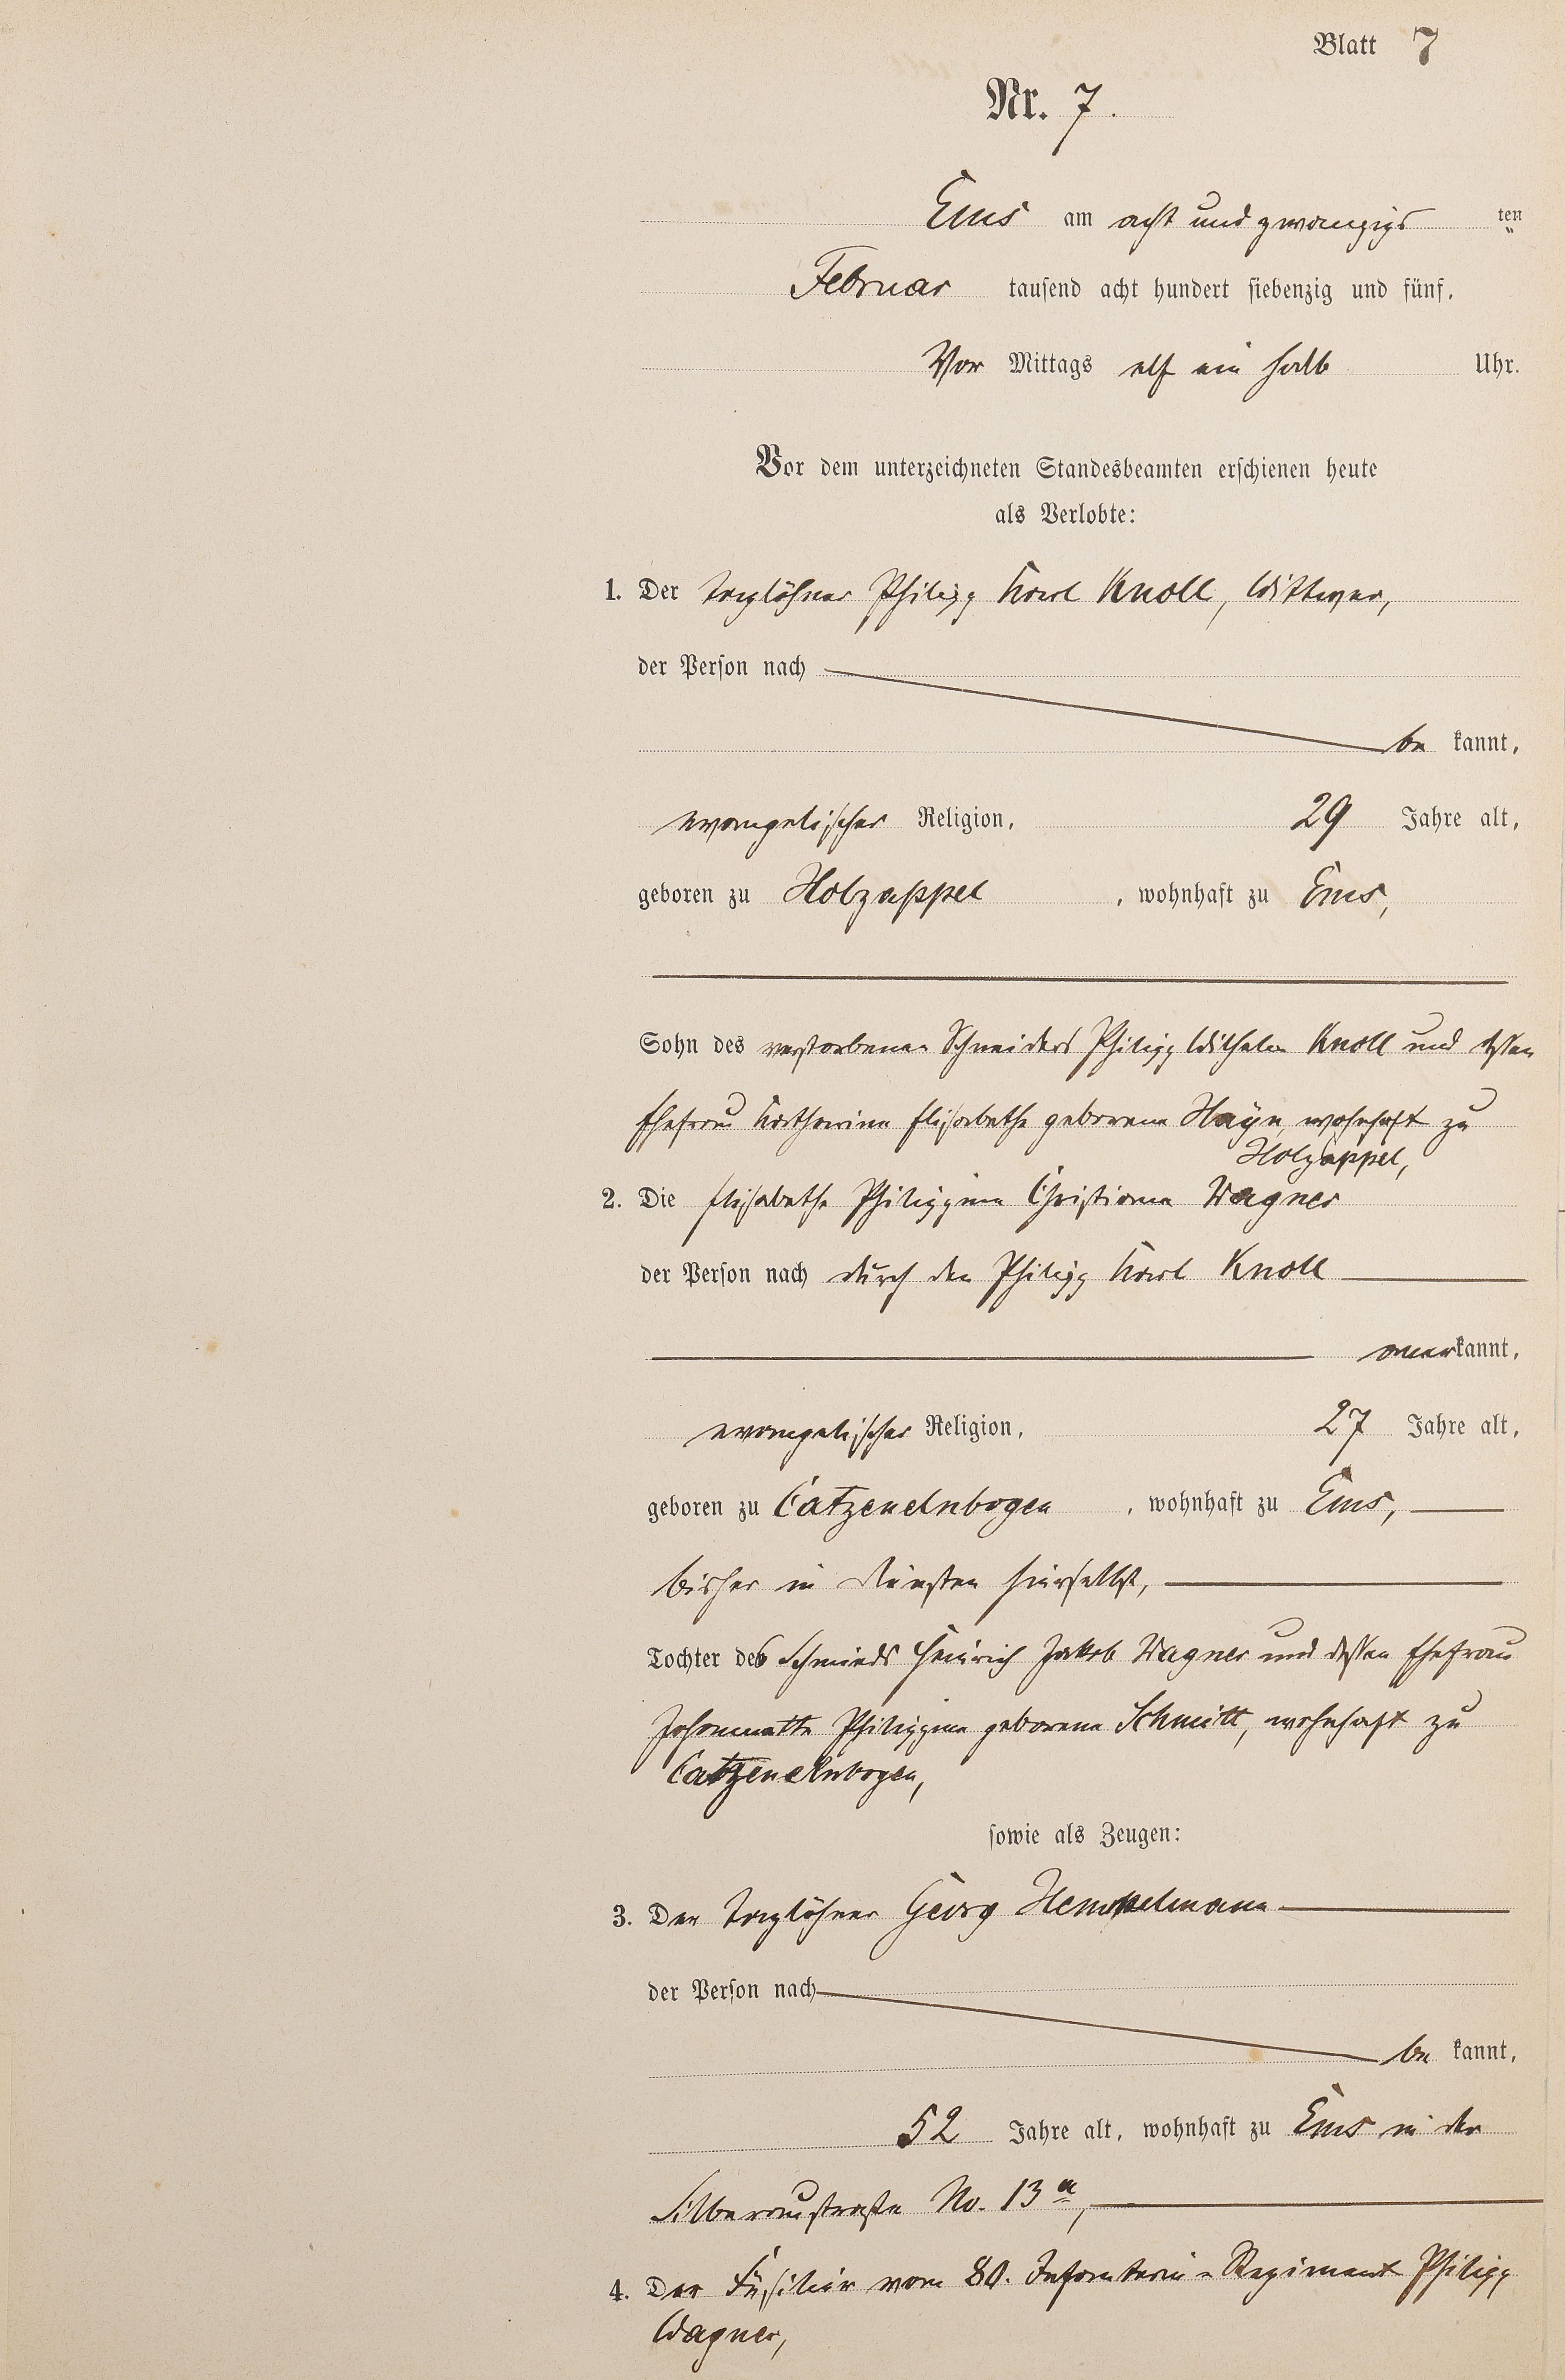 Blatt 7
Nr. 7.
Ems am acht und zwanzigs ten
Februar tausend acht hundert siebenzig und fünf.
Vor Mittags elf ein halb Uhr.
Vor dem unterzeichneten Standesbeamten erschienen heute
als Verlobte:
1. Der Taglöhner Philipp Karl Knoll, Wittwer,
der Person nach
be kannt,
evangelischer Religion, 29 Jahre alt,
geboren zu Holzappel, wohnhaft zu Ems,
Sohn des verstorbenen Schneiders Philipp Wilhelm Knoll und dessen
Ehefrau Katharina Elisabethe geborene Hayn, wohnhaft zu
Holzappel,
2. Die Elisabethe Philippine Christiane Wagner
der Person nach durch den Philipp Karl Knoll
anerkannt,
evangelischer Religion, 27 Jahre alt,
geboren zu Catzenelnbogen, wohnhaft zu Ems,
bisher in Diensten hierselbst,
Tochter des Schmieds Heinrich Jakob Wagner und dessen Ehefrau
Johannette Philippine geborene Schmitt, wohnhaft zu
Catzenelnbogen,
sowie als Zeugen:
3. Der Taglöhner Georg Hempelmann
der Person nach
be kannt,
52 Jahre alt, wohnhaft zu Ems in der
Silberaustraße No. 13a,
4. Der Füsilier vom 80. Infanterie-Regiment Philipp
Wagner,